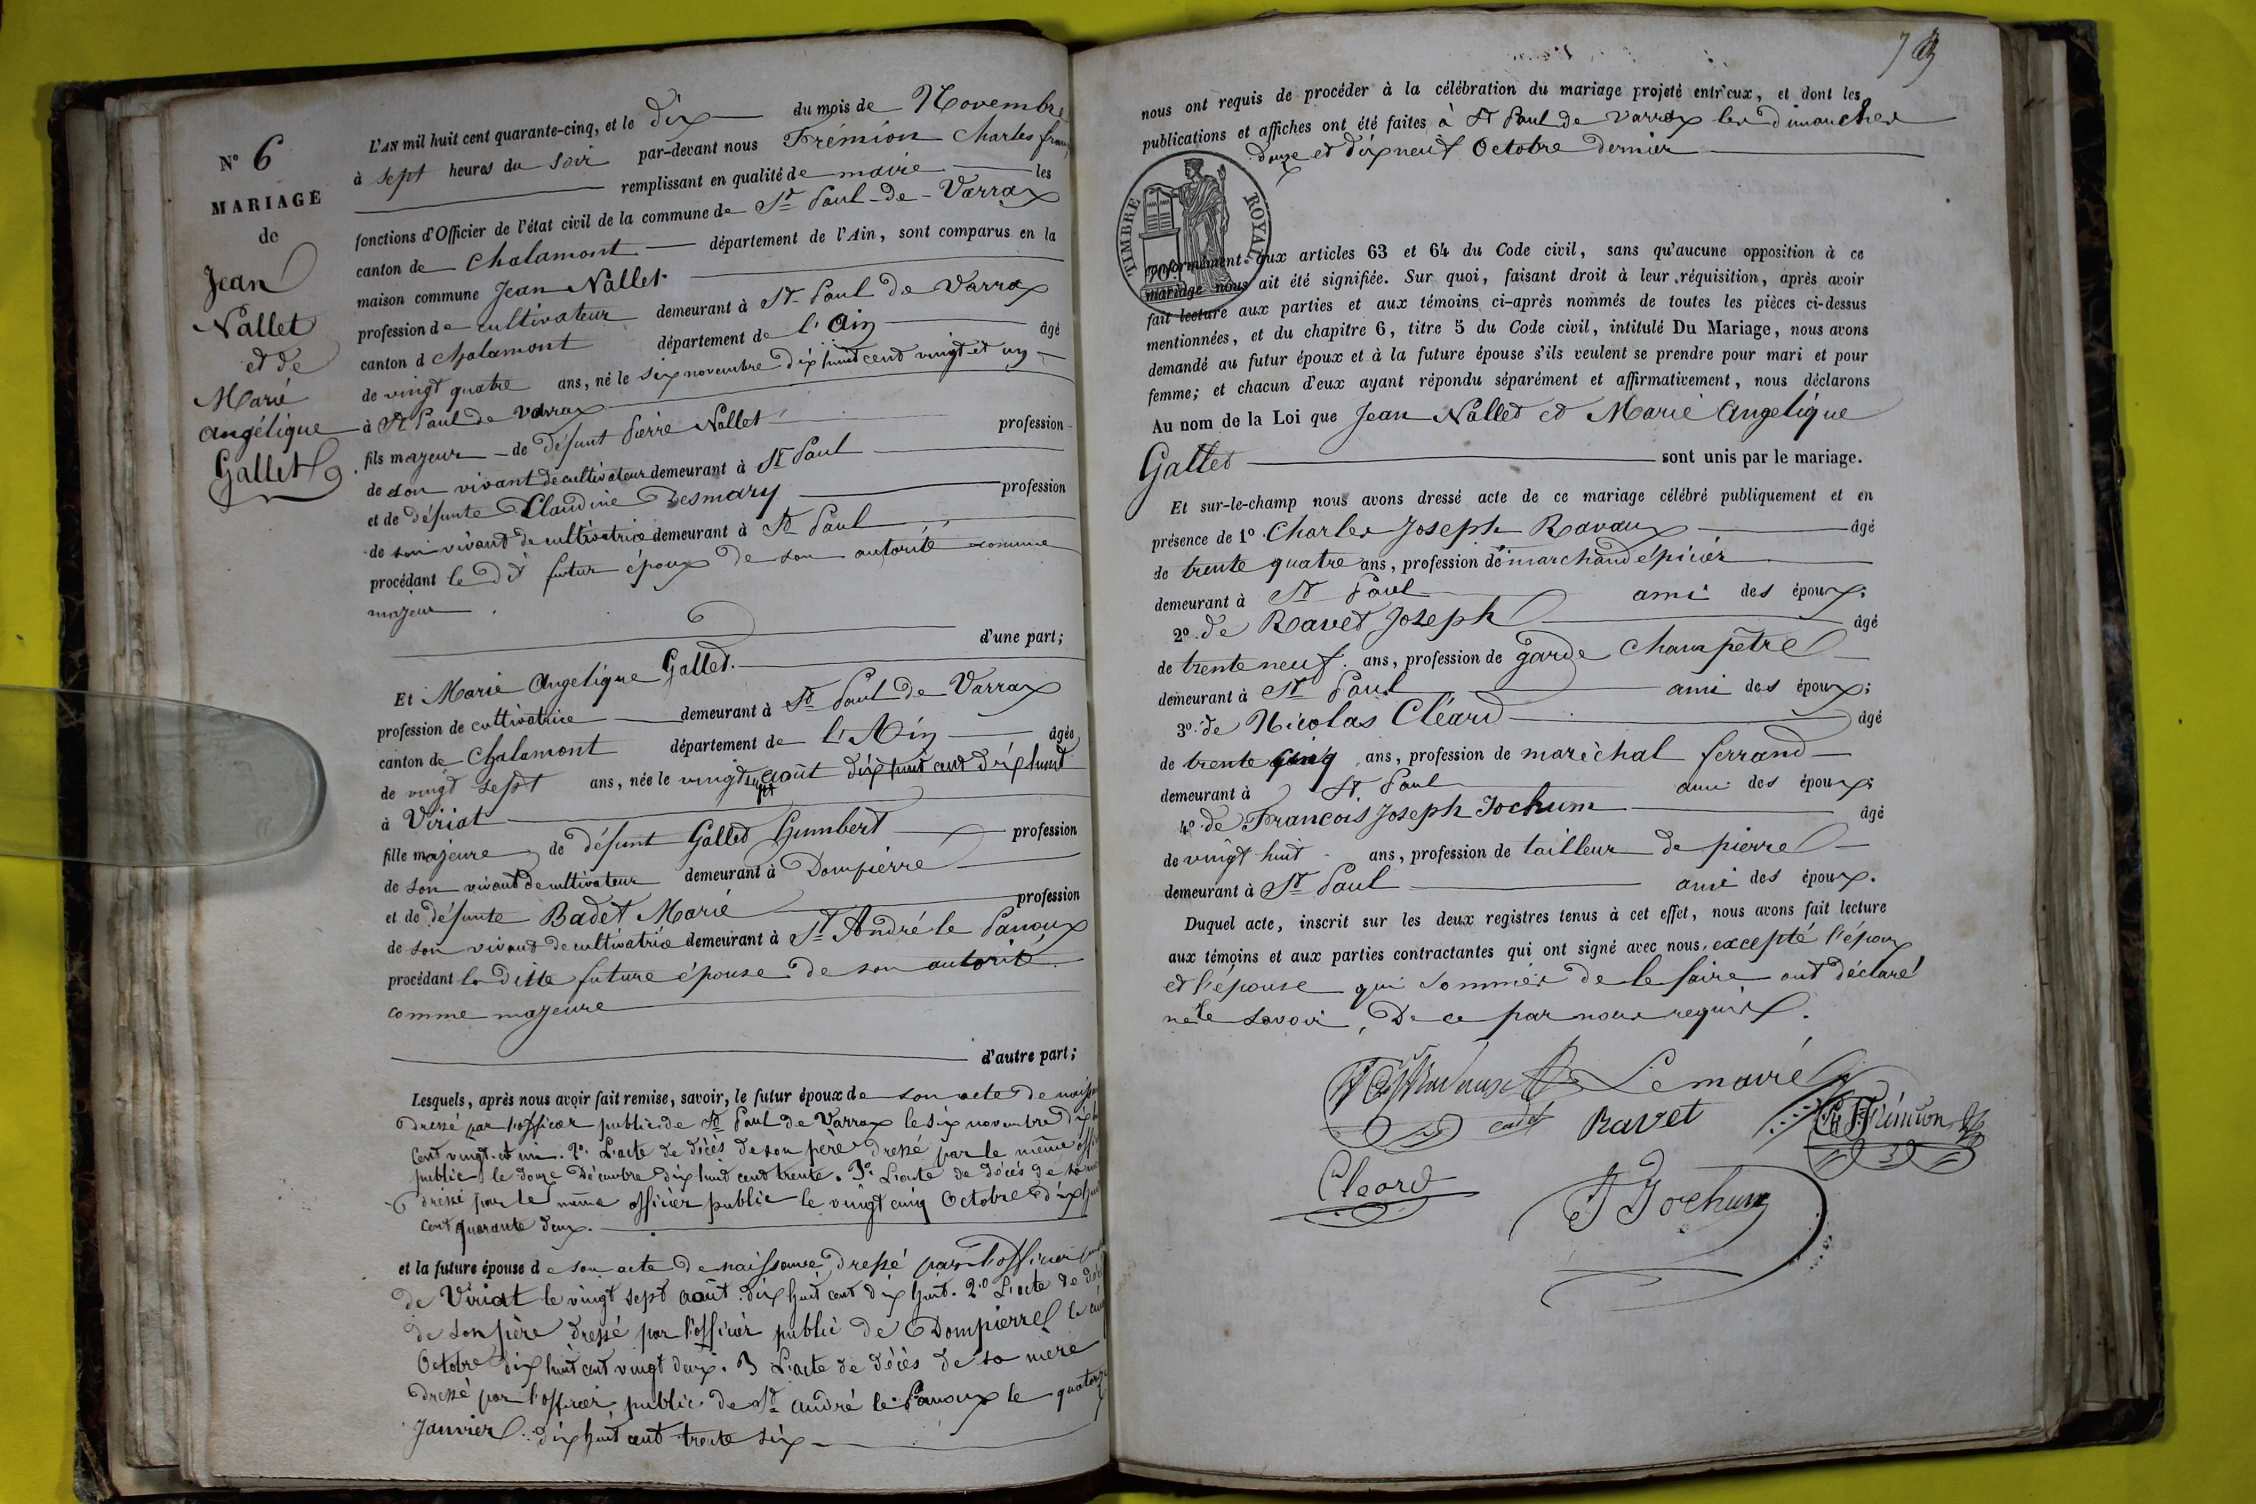 N° 6
MARIAGE
de
Jean
Nallet
et de
Marie
Angélique
Gallet
L'AN mil huit cent quarante-cinq, et le dix du mois de Novembre
à sept heures du soir par-devant nous Frémion Charles
remplissant en qualité de maire les
fonctions d'Officier de l'état civil de la commune de St Paul-de-Varrax
canton de Chalamont département de l'Ain, sont comparus en la
maison commune Jean Nallet
profession de cultivateur demeurant à St Paul de Varrax
canton d Chalamont département de l'Ain âgé
de vingt quatre ans, né le six novembre dix huit cent vingt et un
à St Paul de Varrax
fils majeur de défunt Pierre Nallet profession
de son vivant de cultivateur demeurant à St Paul
et de défunte Claudine Desmary profession
de son vivant de cultivatrice demeurant à St Paul
procédant le dt futur époux de son autorité comme
majeur
d'une part;
Et Marie Angelique Gallet.
profession de cultivatrice demeurant à St Paul de Varrax
canton de Chalamont département de l'Ain âgée
de vingt sept ans, née le vingt sept août dix huit cent dix huit
à Viriat
fille majeure de défunt Gallet Humbert profession
de son vivant de cultivateur demeurant à Dompierre
et de défunte Badet Marie profession
de son vivant de cultivatrice demeurant à St André le Panoux
procédant la ditte future épouse de son autorité
comme majeure
d'autre part;
Lesquels, après nous avoir fait remise, savoir, le futur époux de son acte de
dressé par l'officier public de St Paul de Varrax le six novembre dix
cent vingt et un. 2° L'acte de décès de son père dressé par le même
public le douze Décembre dix huit cent trente. 3° L'acte de décès de sa
dressé par le même officier public le vingt cinq Octobre dix
cent quarante deux.
et la future épouse de son acte de naissance dressé par l'officier
de Viriat le vingt sept août dix huit cent dix huit. 2° L'acte de
de son père dressé par l'officier public de Dompierre le
Octobre dix huit cent vingt deux. 3 L'acte de décès de sa mère
dressé par l'officier public de St André le Panoux le
Janvier dix huit cent trente six
nous ont requis de procéder à la célébration du mariage projeté entr'eux, et dont les
publications et affiches ont été faites à St Paul de Varrax les dimanches
douze et dix neuf Octobre dernier
TIMBRE ROYAL
conformément aux articles 63 et 64 du Code civil, sans qu'aucune opposition à ce
mariage nous ait été signifiée. Sur quoi, faisant droit à leur réquisition, après avoir
fait lecture aux parties et aux témoins ci-après nommés de toutes les pièces ci-dessus
mentionnées, et du chapitre 6, titre 5 du Code civil, intitulé Du Mariage, nous avons
demandé au futur époux et à la future épouse s'ils veulent se prendre pour mari et pour
femme; et chacun d'eux ayant répondu séparément et affirmativement, nous déclarons
Au nom de la Loi que Jean Nallet et Marie Angelique
Gallet sont unis par le mariage.
Et sur-le-champ nous avons dressé acte de ce mariage célébré publiquement et en
présence de 1° Charles Joseph Ravaux âgé
de trente quatre ans, profession de marchand épicier
demeurant à St Paul ami des époux;
2° de Ravet Joseph âgé
de trente neuf ans, profession de garde Champêtre
demeurant à St Paul ami des époux;
3° de Nicolas Cléard âgé
de trente cinq ans, profession de maréchal ferrand
demeurant à St Paul ami des époux;
4° de Francois Joseph Jochum âgé
de vingt huit ans, profession de tailleur de pierre
demeurant à St Paul ami des époux.
Duquel acte, inscrit sur les deux registres tenus à cet effet, nous avons fait lecture
aux témoins et aux parties contractantes qui ont signé avec nous, excepté l'époux
et l'épouse qui sommés de le faire ont déclaré
ne le savoir, De ce par nous requis.
Le maire
cadet Ravet Frémion
Cleard
Jochum